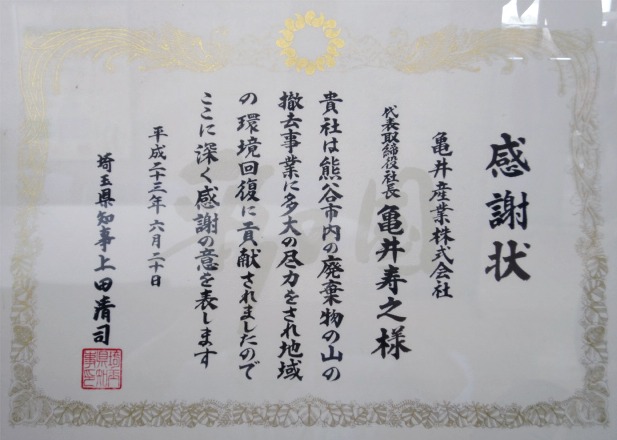 感謝状
亀井産業株式会社
代表取締役社長 亀井寿之様
貴社は熊谷市内の廃棄物の山の
撤去事業に多大の尽力をされ地域
の環境回復に貢献されましたので
ここに深く感謝の意を表します
平成二十三年六月二十日
埼玉県知事 上田清司